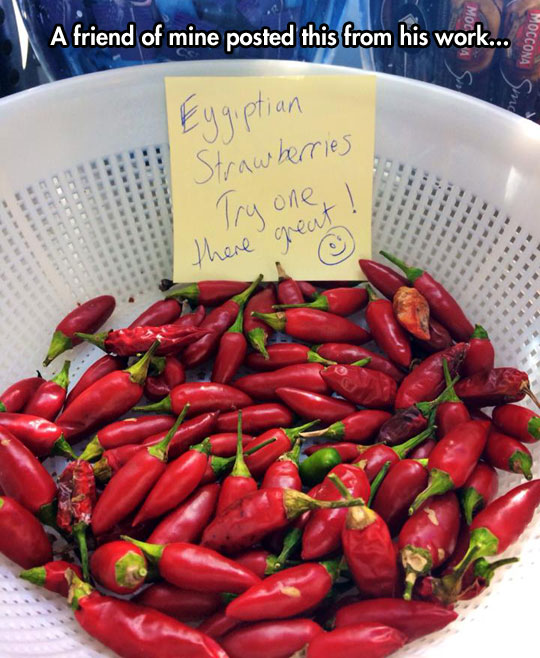 A friend of mine posted this from his work...
MOCCONA
MOCCONA
Eygiptian
Strawberries
Try one
there great!